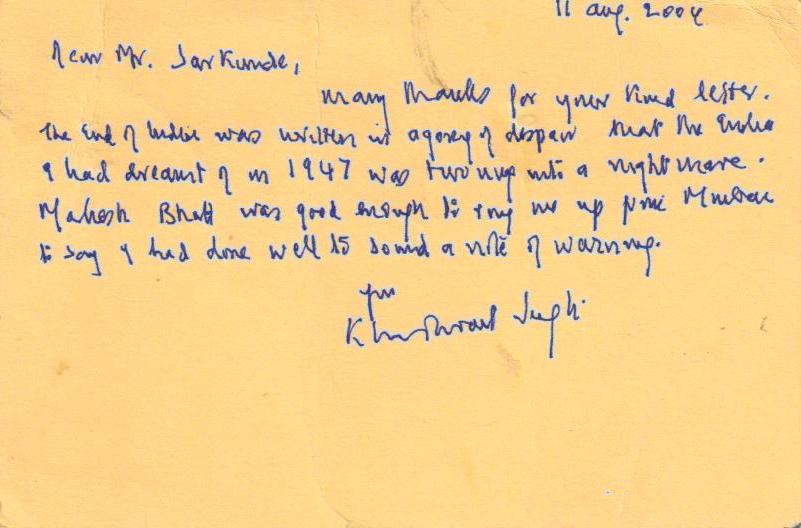 11 aug. 2004
Dear Mr. Sarkunde,
many thanks for your kind letter.
The End of India was written in agony of despair that the India
I had dreamt of in 1947 was turning into a nightmare.
Mahesh Bhatt was good enough to ring me up from Mumbai
to say I had done well to sound a note of warning.
yrs
Khushwant Singh